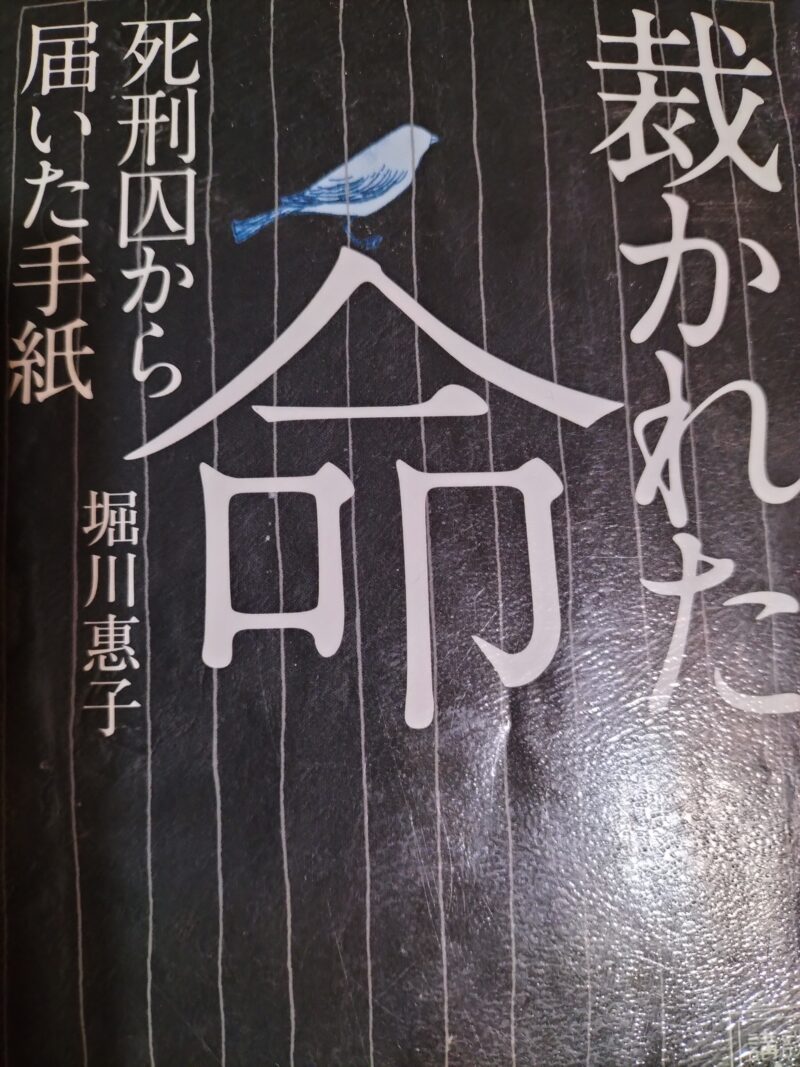 裁かれた
命
死刑囚から
届いた手紙
堀川惠子
講